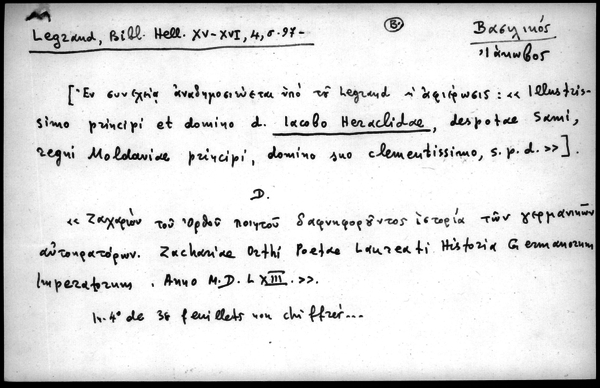 Legrand, Bibl. Hell. XV-XVI, 4, σ. 97-
Β.
Βασιλικός
Ἰάκωβος
[Ἐν συνεχείᾳ ἀναδημοσιεύεται ὑπὸ τοῦ Legrand ἡ ἀφιέρωσις: «Illustris-
simo principi et domino d. Iacobo Heraclidae, despotae Sami,
regni Moldaviae principi, domino suo clementissimo, s.p.d.»].
D.
«Ζαχαρίου τοῦ Ὀρθοῦ ποιητοῦ δαφνηφοροῦντος ἱστορία τῶν γερμανικῶν
αὐτοκρατόρων. Zachariae Orthi Poetae Laureati Historia Germanorum
Imperatorum. Anno M.D.LXIII.».
In-4° de 38 feuillets non chiffrés...